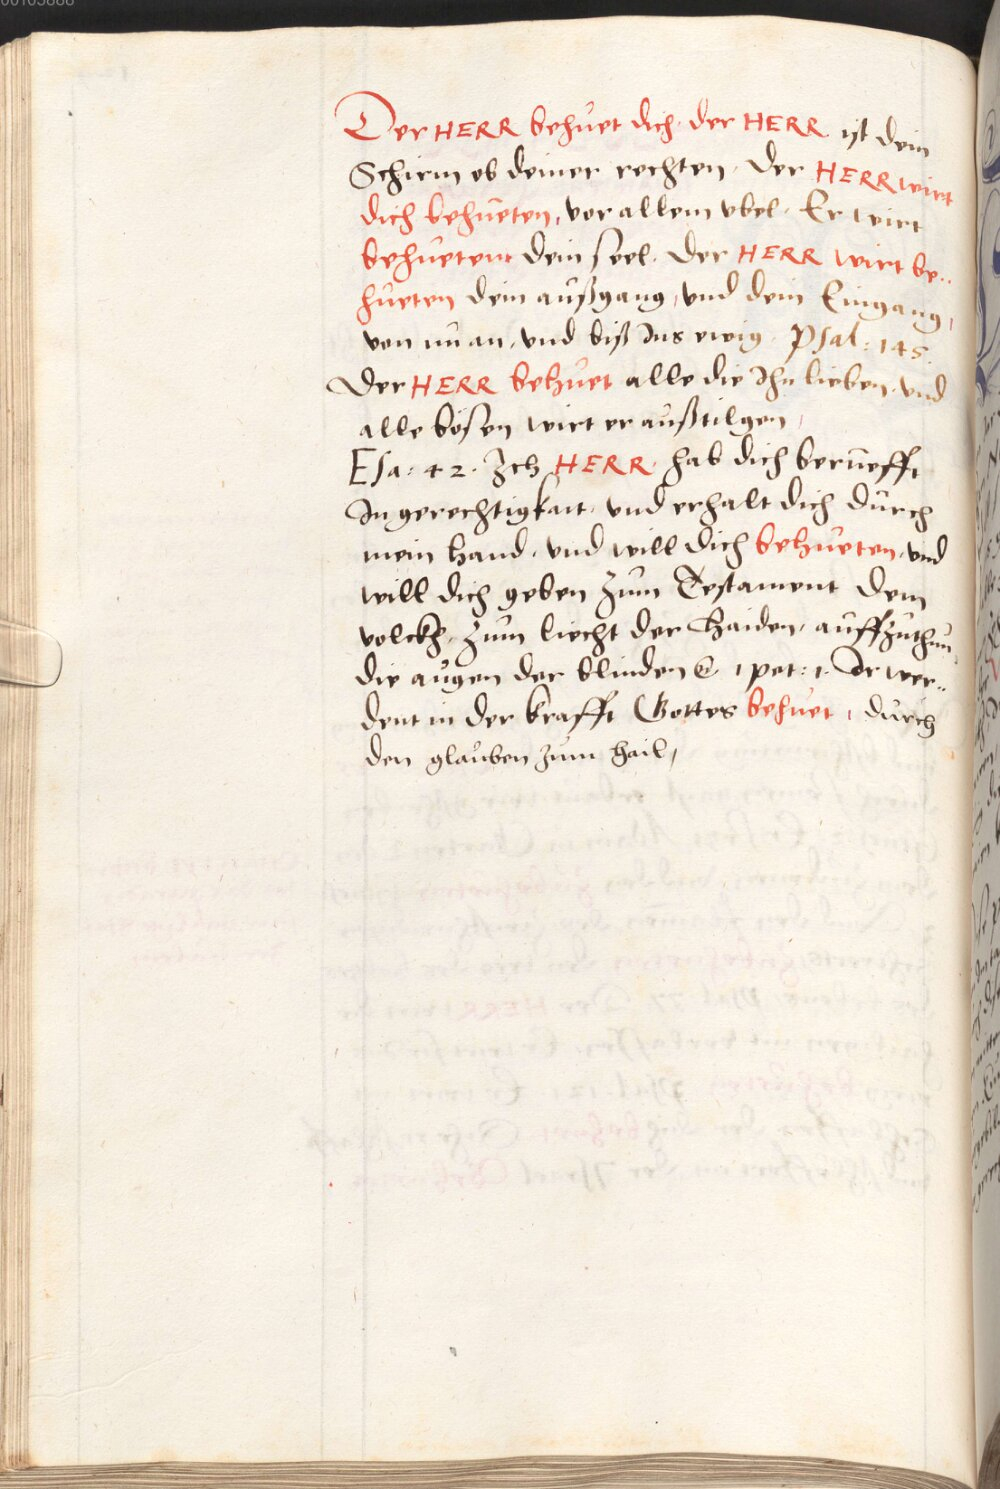 00105888
Der HERR behüet dich. der HERR ist dein
Schirm ob deiner rechten. Der HERR wirt
dich behüeten, vor allem vbel. Er wirt
behüetenn dein seel. Der HERR wirt be..
hüeten dein außgang, vnd dein Eingang,
von nu an, vnd biß Ins ewig. Psal: 145.
Der HERR behüet alle die Ihn lieben, vnd
alle bösen wirt er außtilgen,
Esa: 42. Ich HERR hab dich berüefft
In gerechtigkait, vnd erhalt dich durch
mein hand, vnd will dich behüeten, vnd
will dich geben zum Testament dem
volckh, zum liecht der Haiden, auffzuthun
die augen der blinden &. 1 pet: 1. Ir wer..
dent in der krafft Gottes behüet, durch
den glauben zum hail,